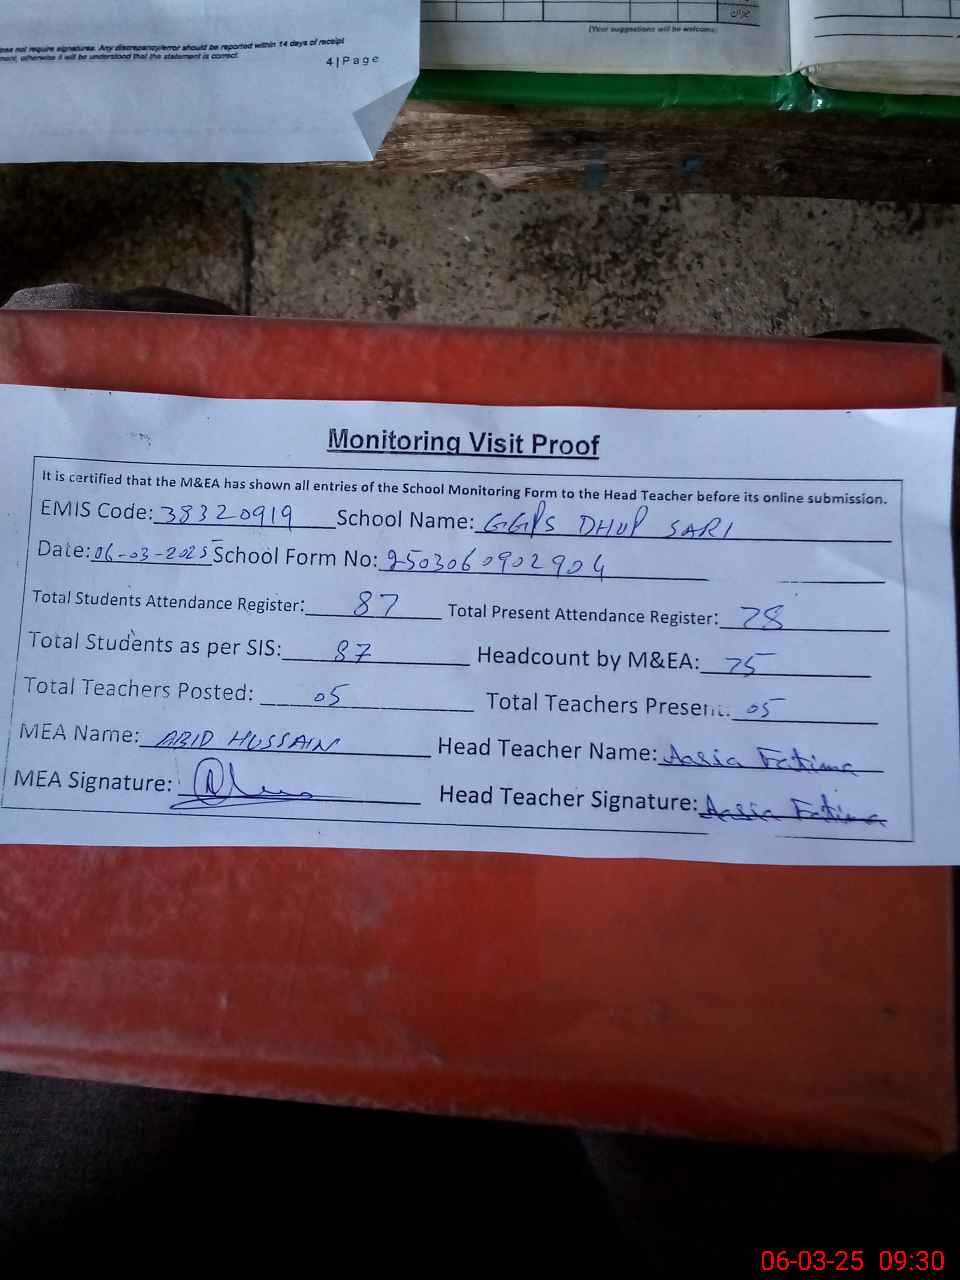 not require signatures. Any discrepancy/error should be reported within 14 days of receipt
otherwise it will be understood that the statement is correct.
4 | Page
میزان
(Your suggestions will be welcome)
Monitoring Visit Proof
It is certified that the M&EA has shown all entries of the School Monitoring Form to the Head Teacher before its online submission.
EMIS Code: 38320919 School Name: GGPS DHUP SARI
Date: 06-03-2025 School Form No: 2503060902904
Total Students Attendance Register: 87 Total Present Attendance Register: 78
Total Students as per SIS: 87 Headcount by M&EA: 75
Total Teachers Posted: 05 Total Teachers Present: 05
MEA Name: ABID HUSSAIN Head Teacher Name: Aasia Fatima
MEA Signature: Head Teacher Signature: Aasia Fatima
06-03-25 09:30